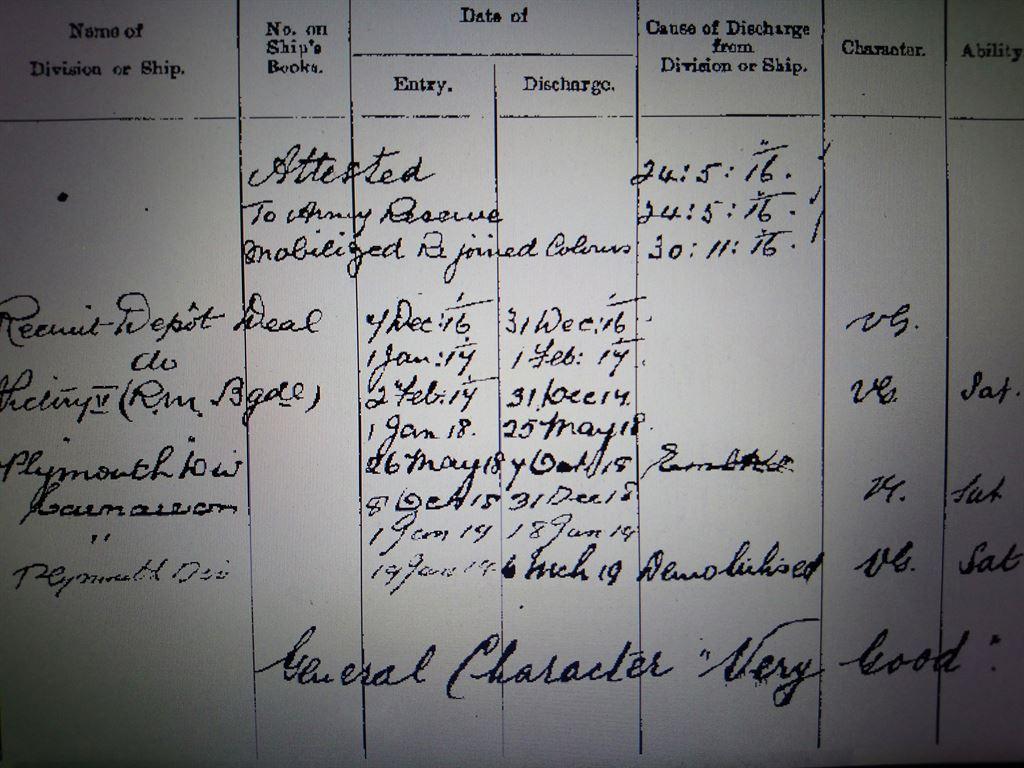 Name of Division or Ship. No. on Ship's Books. Date of Cause of Discharge from Division or Ship. Character. Ability
Entry. Discharge.
Attested 24:5:16.
To Army Reserve 24:5:16.
Mobilized Rejoined Colours 30:11:16.
Recruit Depôt Deal 7 Dec: 16 31 Dec: 16 VG.
do 1 Jan: 17 1 Feb: 17.
Victory V (R.M. Bgde) 2 Feb: 17 31 Dec 17. VG. Sat.
1 Jan 18. 25 May 18.
Plymouth Div 26 May 18 7 Oct 18
Carnarvon 8 Oct 18 31 Dec 18 Sat
" 1 Jan 19 18 Jan 19
Plymouth Div 19 Jan 19. 6 Mch 19 Demobilised VG. Sat
General Character "Very Good".